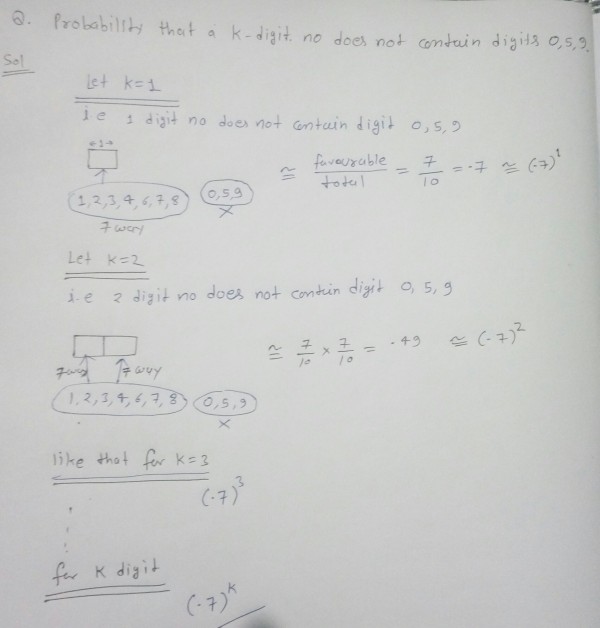 Q. Probability that a k-digit no does not contain digits 0,5,9.
Sol
Let k=1
i.e 1 digit no does not contain digit 0,5,9
←1→
≅ favourable/total = 7/10 = .7 ≅ (.7)^1
1,2,3,4,6,7,8 0,5,9
7 way ×
Let k=2
i.e 2 digit no does not contain digit 0, 5, 9
≅ 7/10 × 7/10 = .49 ≅ (.7)^2
7 way 7 way
1,2,3,4,6,7,8 0,5,9
×
like that for k=3
(.7)^3
for K digit
(.7)^K